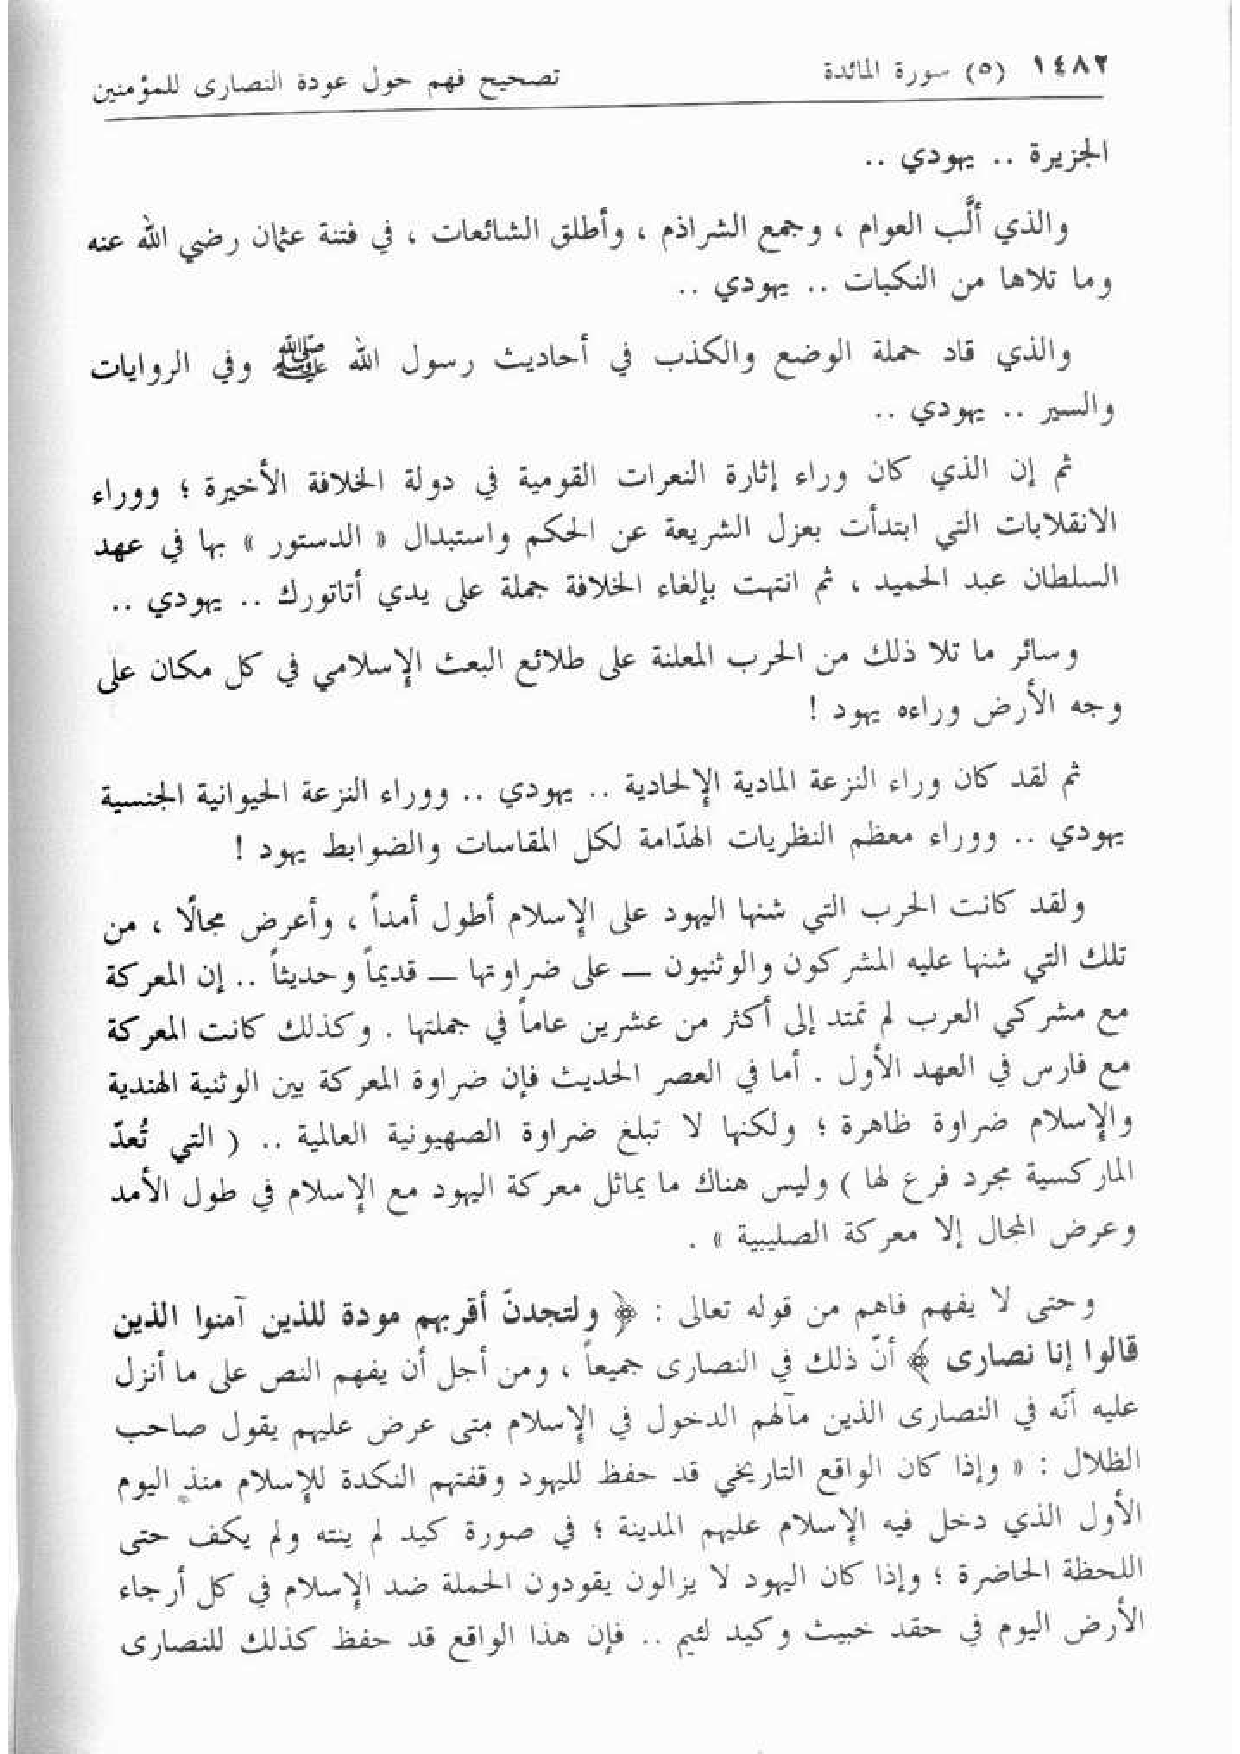 ١٤٨٢ (٥) سورة المائدة تصحيح فهم حول عودة النصارى للمؤمنين
الجزيرة .. يهودي ..
والذي ألَّب العوام ، وجمع الشراذم ، وأطلق الشائعات ، في فتنة عثمان رضي الله عنه
وما تلاها من النكبات .. يهودي ..
والذي قاد حملة الوضع والكذب في أحاديث رسول الله ﷺ وفي الروايات
والسير .. يهودي ..
ثم إن الذي كان وراء إثارة النعرات القومية في دولة الخلافة الأخيرة ؛ ووراء
الانقلابات التي ابتدأت بعزل الشريعة عن الحكم واستبدال « الدستور » بها في عهد
السلطان عبد الحميد ، ثم انتهت بإلغاء الخلافة جملة على يدي أتاتورك .. يهودي ..
وسائر ما تلا ذلك من الحرب المعلنة على طلائع البعث الإسلامي في كل مكان على
وجه الأرض وراءه يهود !
ثم لقد كان وراء النزعة المادية الإلحادية .. يهودي .. ووراء النزعة الحيوانية الجنسية
يهودي .. ووراء معظم النظريات الهدّامة لكل المقاسات والضوابط يهود !
ولقد كانت الحرب التي شنها اليهود على الإسلام أطول أمداً ، وأعرض مجالًا ، من
تلك التي شنها عليه المشركون والوثنيون ــ على ضراوتها ــ قديماً وحديثاً .. إن المعركة
مع مشركي العرب لم تمتد إلى أكثر من عشرين عاماً في جملتها . وكذلك كانت المعركة
مع فارس في العهد الأول . أما في العصر الحديث فإن ضراوة المعركة بين الوثنية الهندية
والإسلام ضراوة ظاهرة ؛ ولكنها لا تبلغ ضراوة الصهيونية العالمية .. ( التي تُعدّ
الماركسية مجرد فرع لها ) وليس هناك ما يماثل معركة اليهود مع الإسلام في طول الأمد
وعرض المجال إلا معركة الصليبية » .
وحتى لا يفهم فاهم من قوله تعالى : ﴿ ولتجدنّ أقربهم مودة للذين آمنوا الذين
قالوا إنا نصارى ﴾ أنّ ذلك في النصارى جميعاً ، ومن أجل أن يفهم النص على ما أنزل
عليه أنّه في النصارى الذين مآلهم الدخول في الإسلام متى عرض عليهم يقول صاحب
الظلال : « وإذا كان الواقع التاريخي قد حفظ لليهود وقفتهم النكدة للإسلام منذ اليوم
الأول الذي دخل فيه الإسلام عليهم المدينة ؛ في صورة كيد لم ينته ولم يكف حتى
اللحظة الحاضرة ؛ وإذا كان اليهود لا يزالون يقودون الحملة ضد الإسلام في كل أرجاء
الأرض اليوم في حقد خبيث وكيد لئيم .. فإن هذا الواقع قد حفظ كذلك للنصارى